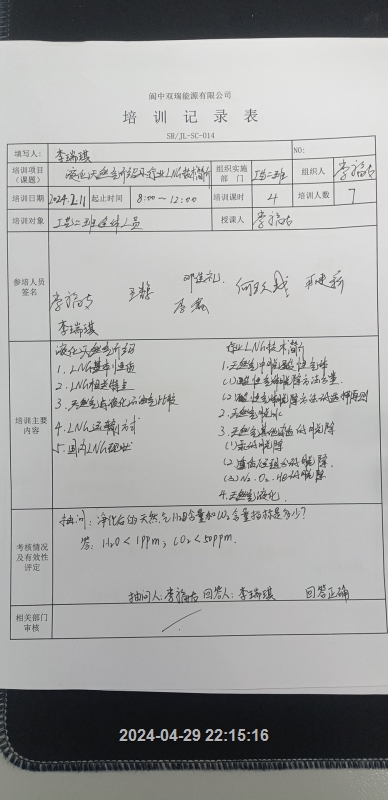 阆中双瑞能源有限公司
培训记录表
SR/JL-SC-014
填写人： 李瑞琪 NO:
培训项目（课题） 液化天然气介绍及行业LNG技术简介 组织实施部门 工艺二班 组织人 李福友
培训日期 2024.2.11 起止时间 8:00～12:00 培训课时 4 培训人数 7
培训对象 工艺二班 人员 授课人 李福友
参培人员签名
李福友 王静 邓建礼 何
李瑞琪
培训主要内容
液化天然气介绍
1. LNG基本性质
2. LNG相关特点
3. 天然气与液化石油气比较
4. LNG运输方式
5. 国内LNG现状
行业LNG技术简介
1. 天然气中脱酸性气体
(1)酸性气体脱除方法分类
(2)酸性气体脱除方法的选择原则
2. 天然气脱水
3. 天然气其他杂质的脱除
(1)汞的脱除
(2)重烃组分的脱除
(3)N₂、O₂、He的脱除
4. 天然气液化
考核情况及有效性评定
抽问：净化后的天然气H₂O含量和CO₂含量指标是多少？
答：H₂O＜1ppm；CO₂＜50ppm.
抽问人：李福友 回答人：李瑞琪 回答正确
相关部门审核
2024-04-29 22:15:16